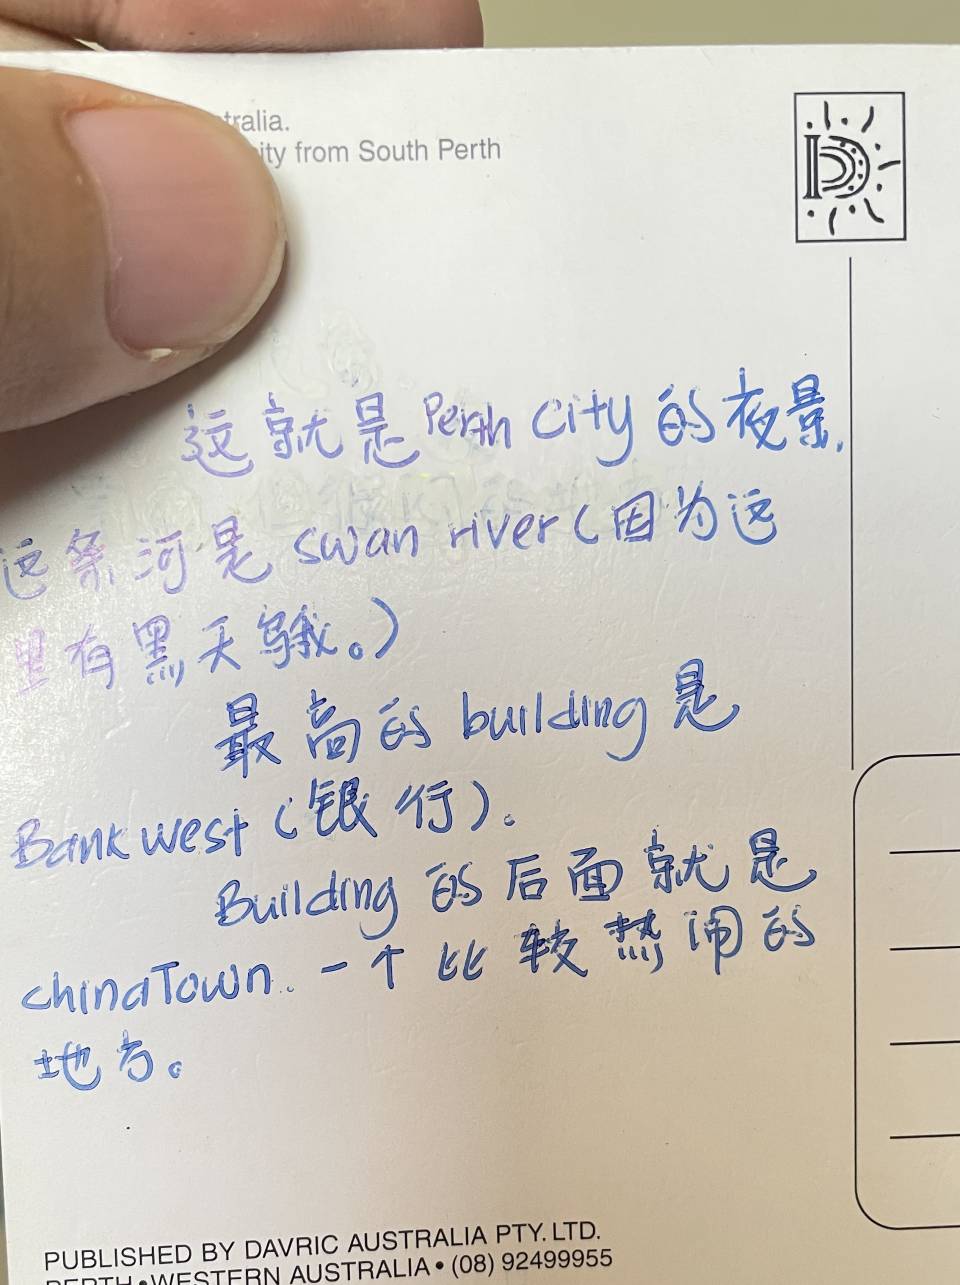 tralia.
ity from South Perth
这就是 Perth City 的夜景,
这条河是 swan river (因为这
里有黑天鹅。)
最高的 building 是
Bankwest (银行).
Building 的后面就是
chinaTown. 一个比较热闹的
地方。
PUBLISHED BY DAVRIC AUSTRALIA PTY. LTD.
PERTH • WESTERN AUSTRALIA • (08) 92499955